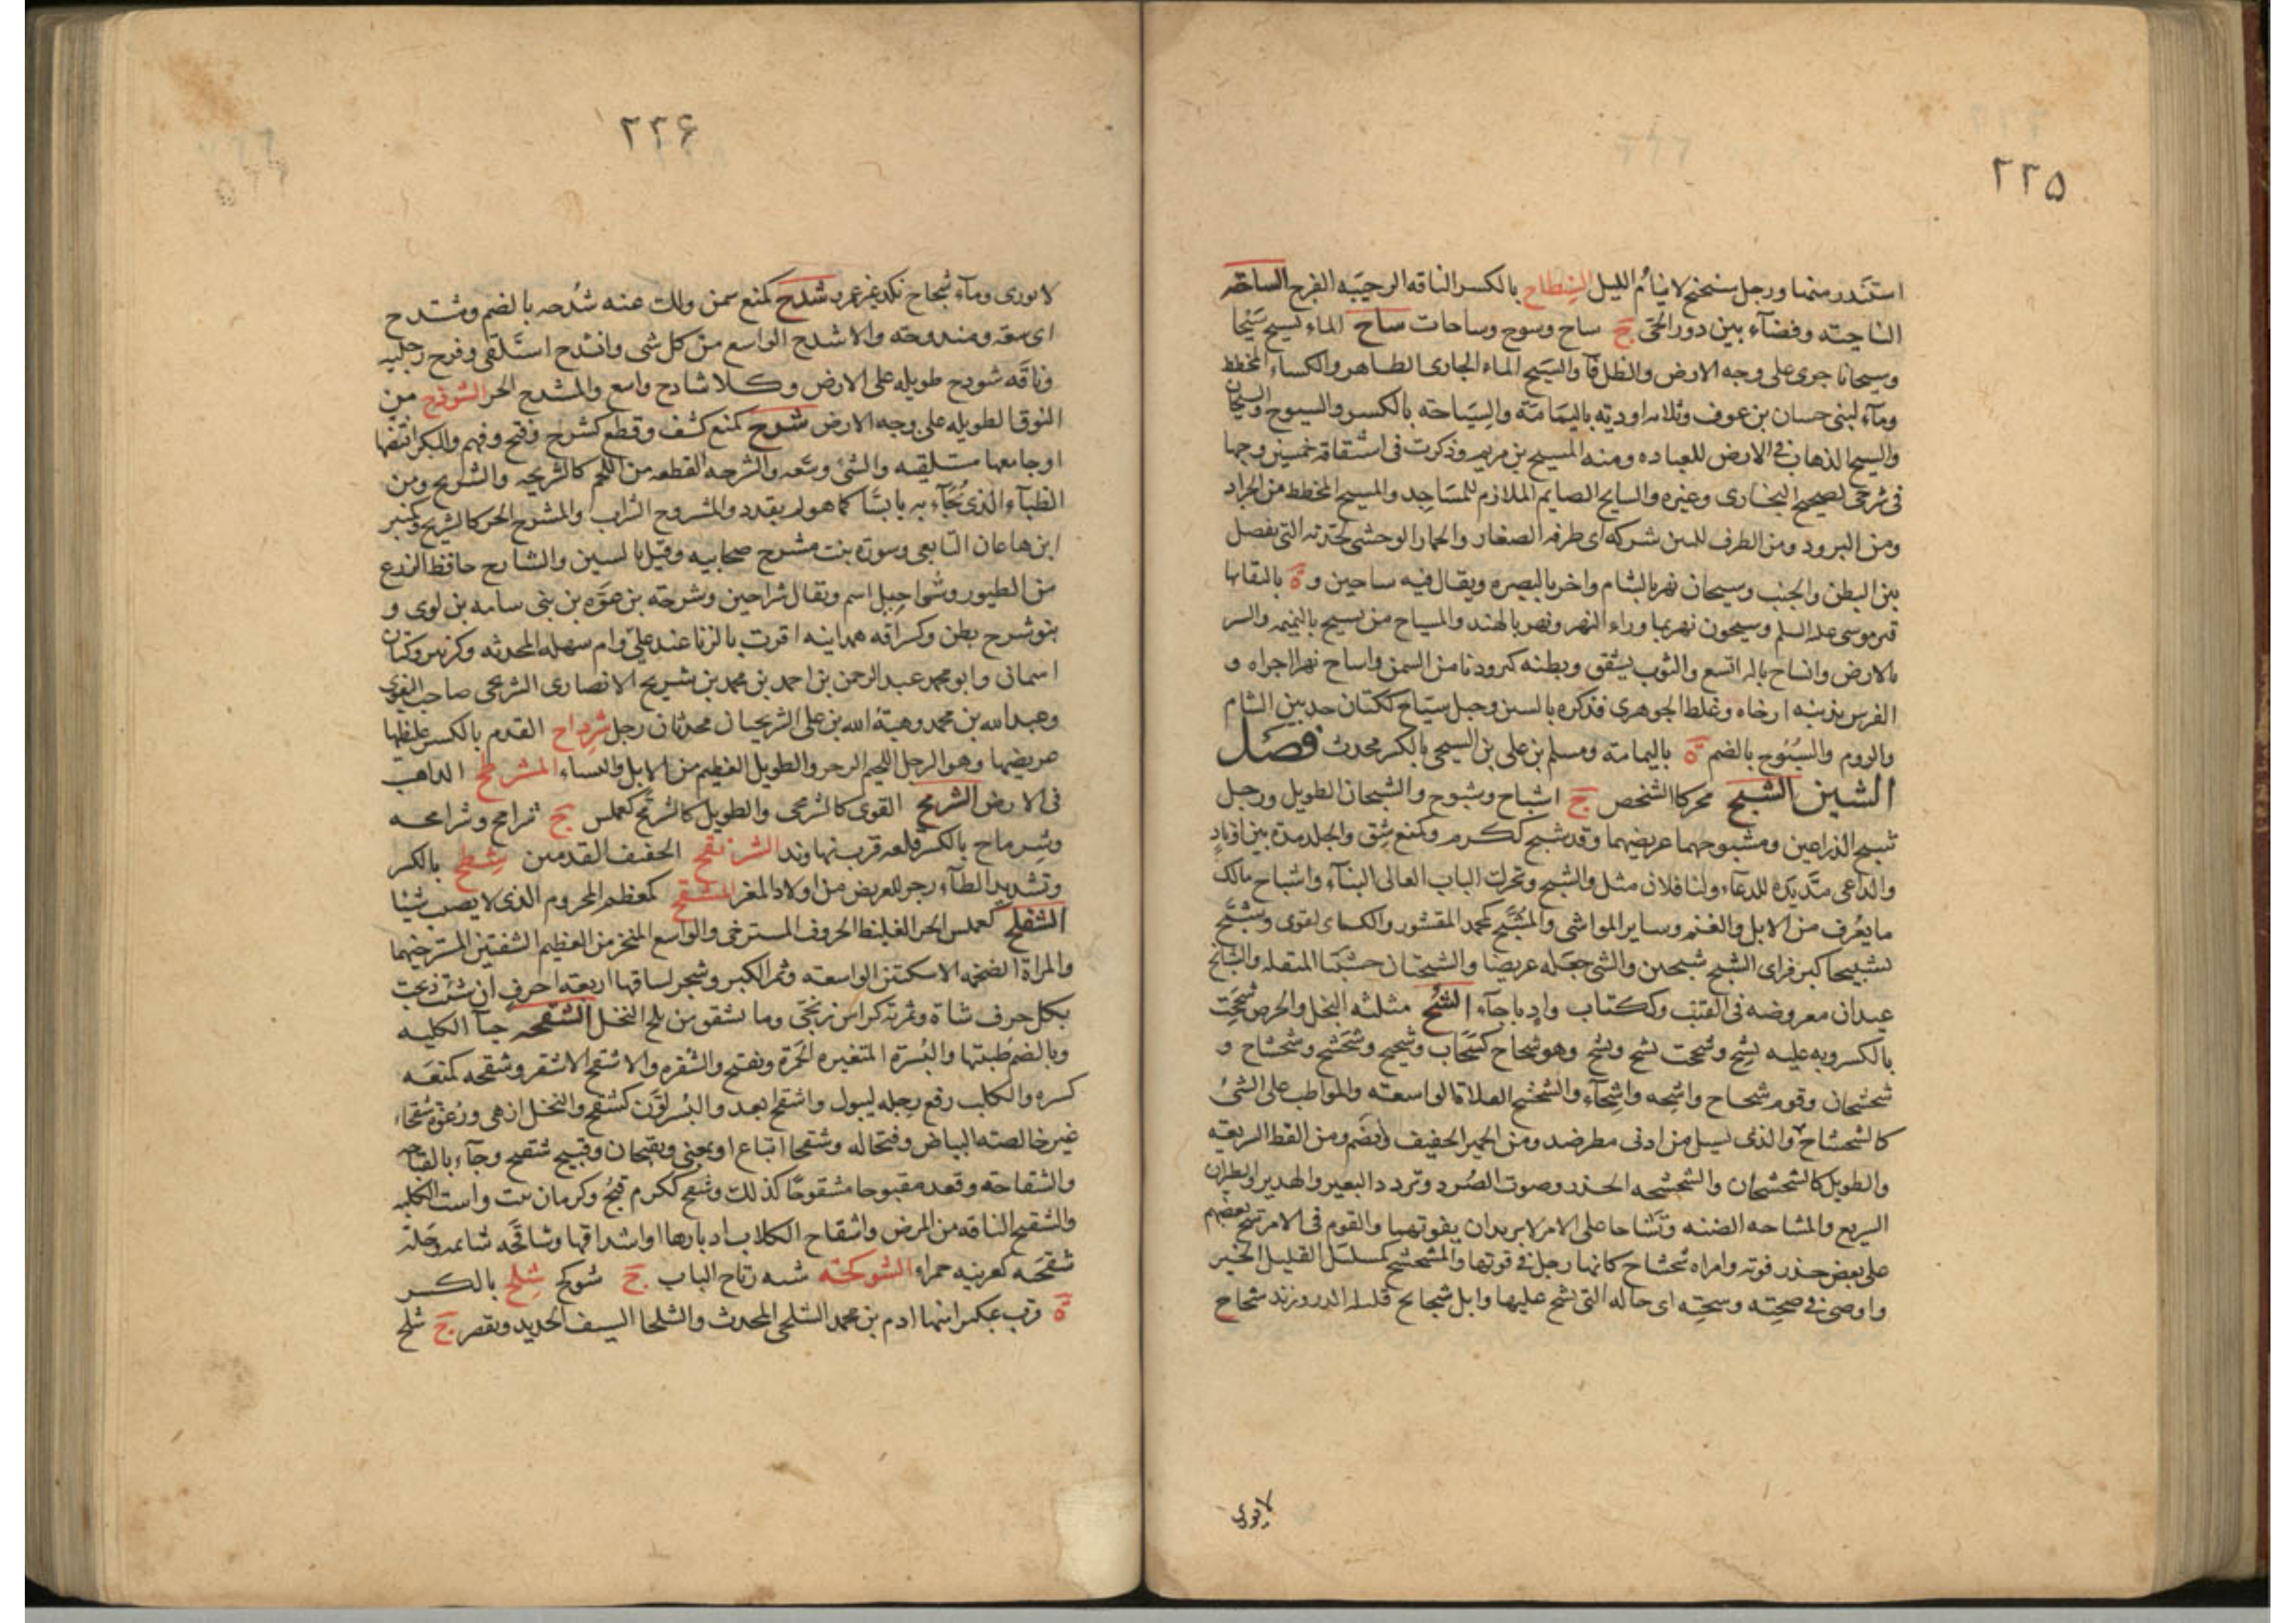 ٢٢۵
استندر منها ورجل سنحنح لا ينام الليل السنطاح بالكسر الناقه الرحيبه الفرج الساحة
الناحيته وفضآء بين دور الحى ج ساح وسوح وساحات ساح الماء يسيح سيحا
وسيحانا جرى على وجه الارض والظل فآ والسيح الماء الجارى الظاهر والكساء المخطط
ومآء لبنى حسان بن عوف وثلاثه اوديه باليمامة والسياحته بالكسر والسيوح والسيحان
والسيح الذهاب فى الارض للعباده ومنه المسيح بن مريم وذكرت فى اشتقاقه خمسين وجها
فى شرحى لصحيح البخارى وغيره والسايح الصايم الملازم للمساجد والمسيح المخطط من الجراد
ومن البرود ومن الطرق المبين شركه اى طرقه الصغار والحمار الوحشى لجدته التى تفصل
بين البطن والجنب وسيحان نهر بالشام واخر بالبصره ويقال فيه ساحين و ة بالبلقا بها
قبر موسى عليه السلم وسيحون نهر بما وراء النهر ونهر بالهند والمسياح من يسيح بالنميمه والشر
بالارض وانساح باله اتسع والثوب يشقق وبطنه كبر ودنا من السمن واساح نهرا اجراه و
الفرس بذنبه ارخاه وغلط الجوهرى فذكره بالسين وجبل سياح ككتان حد بين الشام
والروم والسيوح بالضم ة باليمامة ومسلم بن على بن السيحى بالكسر محدث فصل
الشين الشبح محركا الشخص ج اشباح وشبوح والشبحان الطويل ورجل
شبح الذراعين ومشبوحهما عريضهما وقد شبح ككرم وكمنع شق والجلد مده بين اوتاد
والداعى مد يده للدعاء ولنا فلان مثل والشبح وتحرك الباب العالى البنآء واشباح مالك
ما يعرف من الابل والغنم وساير المواشى والمشبح كمحمد المقشور والكساء القوى وشبح
تشبيحا كبر فراى الشبح شبحين والشى جعله عريضا والشبحتان خشبتا المنقله والشبائح
عيدان معروضه فى القتب وككتاب واد باجآء الشح مثلثه البخل والحرص شححت
بالكسر وبه عليه يشح وشححت تشح وتشح وهو شحاح كسحاب وشحيح وشحشح وشحشاح و
شحشحان وقوم شحاح واشحه واشحآء والشحشح الفلاة الواسعته والمواظب على الشئ
كالشحشاح والذى يسيل من ادنى مطر ضد ومن الحمير الخفيف ويضم ومن القطا السريعه
والطويل كالشحشحان والشحشحه الحذر وصوت الصرد وتردد البعير والهدير والطيران
السريع والمشاحه الضنه وتشاحا على الامر لا يريدان يفوتهما والقوم فى الامر شح بعضهم
على بعض حذر فوته وامراه شحشاح كانها رجل فى قوتها والمشحشح كمسلسل القليل الخير
واوصى فى صحته وشحته اى حاله التى يشح عليها وابل شحائح قليله الدر وزند شحاح
لا يورى
٢٢۶
لا يورى ومآء شحاح نكد غير غمر شدح كمنع سمن ولك عنه شدحه بالضم ومشتدح
اى سعة ومندوحته والاشدح الواسع من كل شى وانشدح استلقى وفرج رجليه
وناقه شودح طويله على الارض وكلا شادح واسع والمشدح الحر الشوذح من
النوق الطويله على وجه الارض شرح كمنع كشف وقطع كشرح وفتح وفهم والبكر افتضها
او جامعها مستلقيه والشئ وسعه والشرحه القطعه من اللحم كالشريحه والشريح ومن
الظبآء الذى يجآء به يابسا كما هو لم يقدد والمشروح السراب والمشرح الحر كالشريح وكمنبر
ابن هاعان التابعى وسودة بنت مشرح صحابيه وقيل بالسين والشارح حافظ الزرع
من الطيور وشراحيل اسم ويقال شراحين وشرحته بن عوه بن بنى سامه بن لوى و
بنو شرح بطن وكسراقه همدانيه اقرت بالزنا عند على وام سهله المحدثه وكزبير وكتان
اسمانى وابو محمد عبد الرحمن بن احمد بن محمد بن شريح الانصارى الشريحى صاحب البغوى
وعبد الله بن محمد وهبة الله بن على الشريحيان محدثان رجل شرداح القدم بالكسر غليظها
عريضها وهو الرجل اللحيم الرخو والطويل العظيم من الابل والنساء المشرطح الذاهب
فى الارض الشرمح القوى كالشرمحى والطويل كالشرمح كعملس ج شرامح وشرامحه
وشرماح بالكسر قلعه قرب نهاوند الشرنفح الخفيف القدمين شطح بالكسر
وتشديد الطآء زجر للعريض من اولاد المعز المشفح كمعظم المحروم الذى لا يصيب شيئا
الشفلح كعملس الحر الغليظ الحروف المسترخى والواسع المنخرين العظيم الشفتين المسترخيهما
والمراة الضخمه الاسكتين الواسعته وثمر الكبر وشجر لساقها اربعته احرف ان شئت ذبحت
بكل حرف شاة وثمرته كراس زنجى وما تشقق من بلح النخل الشقحه حيآ الكلبه
وبالضم ظبيتها والبسرة المتغيره الحمرة ويفتح والشقره والاشقح الاشقر وشقحه كمنعه
كسره والكلب رفع رجله ليبول واشقح ابعد والبسر لون كشقح والنخل ازهى ورغوة شقحاء
غير خالصته البياض وقبحا له وشقحا اتباع او بمعنى ويفتحان وقبيح شقيح وجآء بالقباحه
والشقاحته وقعد مقبوحا مشقوحا كذلك وشقح ككرم قبح وكرمان نبت واست الكلبه
والشقيح الناقه من المرض واشقاح الكلاب ادبارها او اشداقها وشاقحه شاتمه وحلة
شقحيه كعرنيه حمراء الشوكحته شبه رتاج الباب ج شوكح شلح بالكسر
ة قرب عكبرا منها ادم بن محمد الشلحى المحدث والشلحا السيف الحديد ويقصر ج شلح